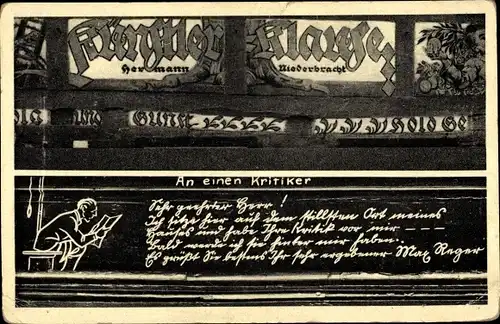 Künstler Klause
Hermann Niederbracht
und Gunst
Hold Ge
An einen Kritiker
Sehr geehrter Herr!
Ich sitze hier auf dem stillsten Ort meines
Hauses und habe Ihre Kritik vor mir ---
Bald werde ich sie hinter mir haben.
Es grüßt Sie bestens Ihr sehr ergebener Max Reger